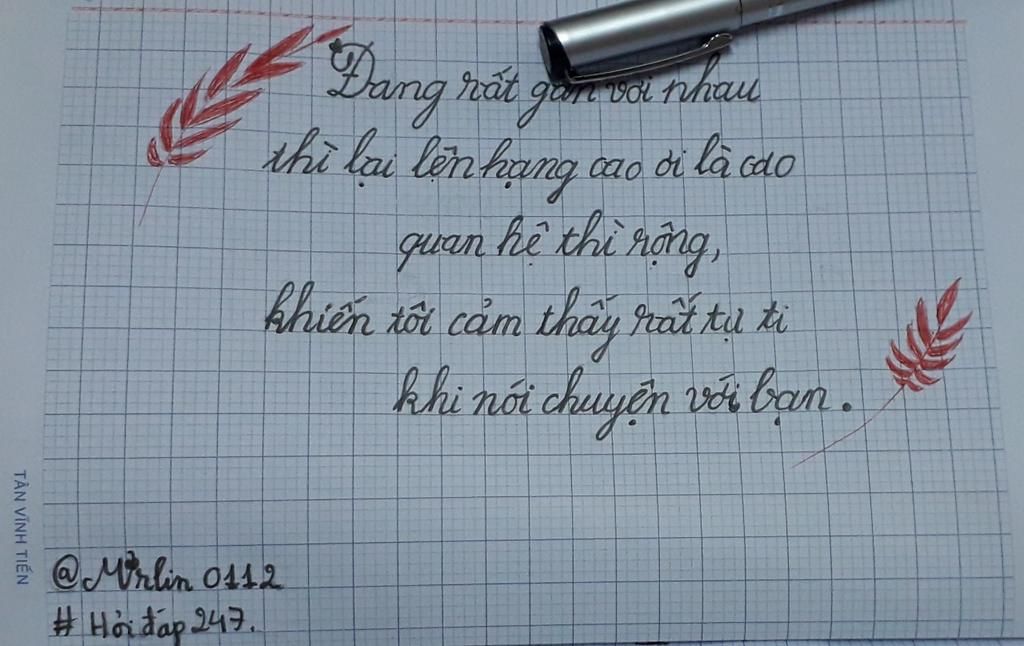 Đang rất gần với nhau
thì lại lên hạng cao ơi là cao
quan hệ thì rộng,
khiến tôi cảm thấy rất tự ti
khi nói chuyện với bạn.
TÂN VĨNH TIẾN
@Mởrlin 0112
# Hỏi đáp 247.